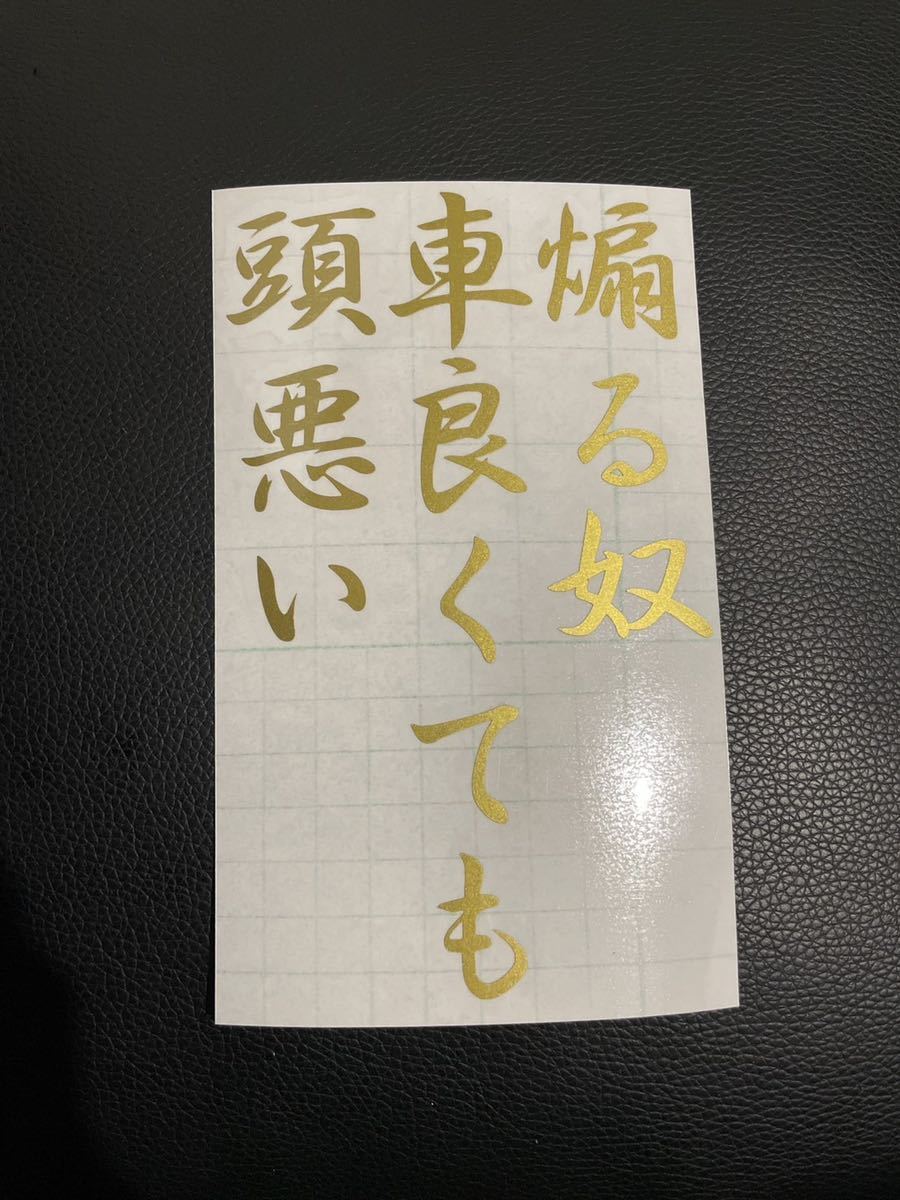 煽る奴
車良くても
頭悪い